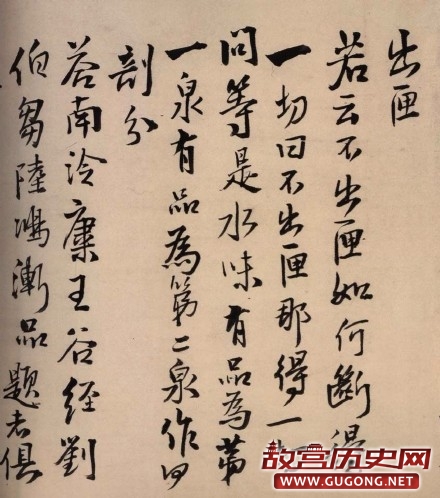 出匣
若云不出匣如何斷得
一切曰不出匣那得一切
問等是水味有品為第
一泉有品為第二泉作何
剖分
答南泠康王谷經劉
伯芻陸鴻漸品題者俱
故宫历史网
WWW.GUGONG.NET